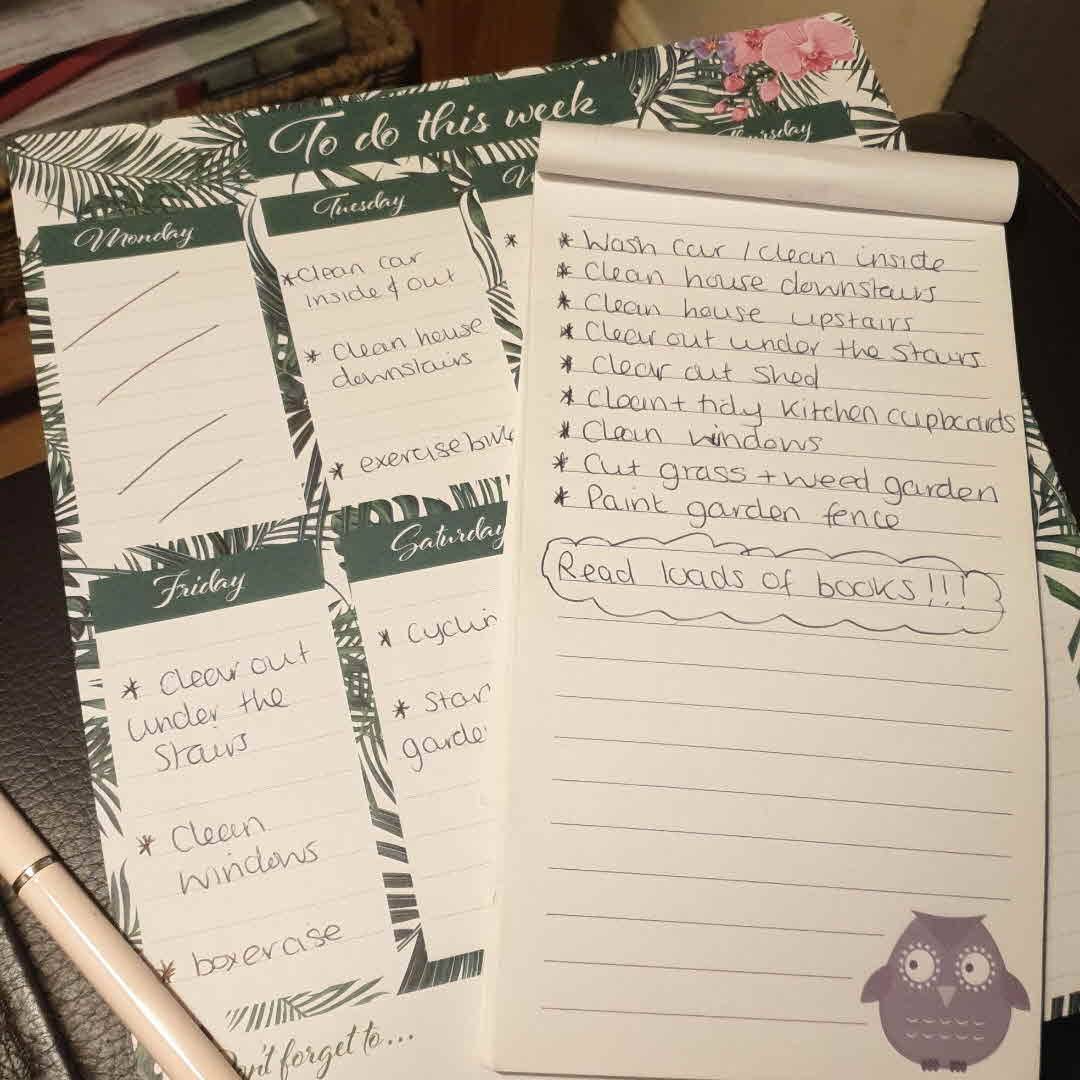 To do this week
Monday
Tuesday
*Clean car
inside & out
* Clean house
downstairs
* exercise
Thursday
Friday
* Clear out
under the
Stairs
* Clean
windows
* boxercise
Saturday
*
*
forget to...
* Wash car / clean inside
* Clean house downstairs
* Clean house upstairs
* Clear out under the stairs
* Clear out shed
* Clean + tidy kitchen cupboards
* Clean windows
* Cut grass + weed garden
* Paint garden fence
Read loads of books!!!